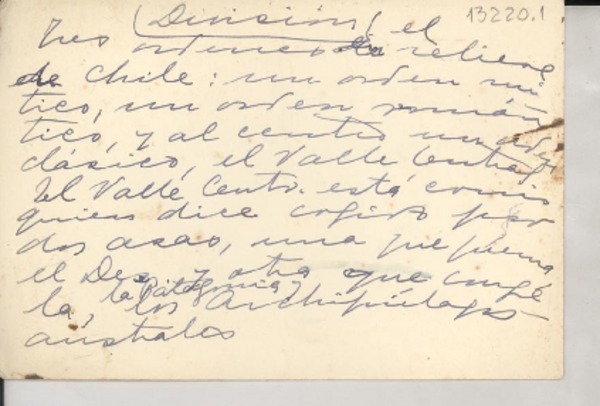 13220.1
(División) el
tres ordenes de relieve
de Chile: un orden mí
tico, un orden román
tico, y al centro un orden
clásico, el Valle Central
El Valle Centr. está como
quien dice cogido por
dos asas, una que quema
el Des. y otra que conge
la, la Patagonia y los Archipiélagos
australes